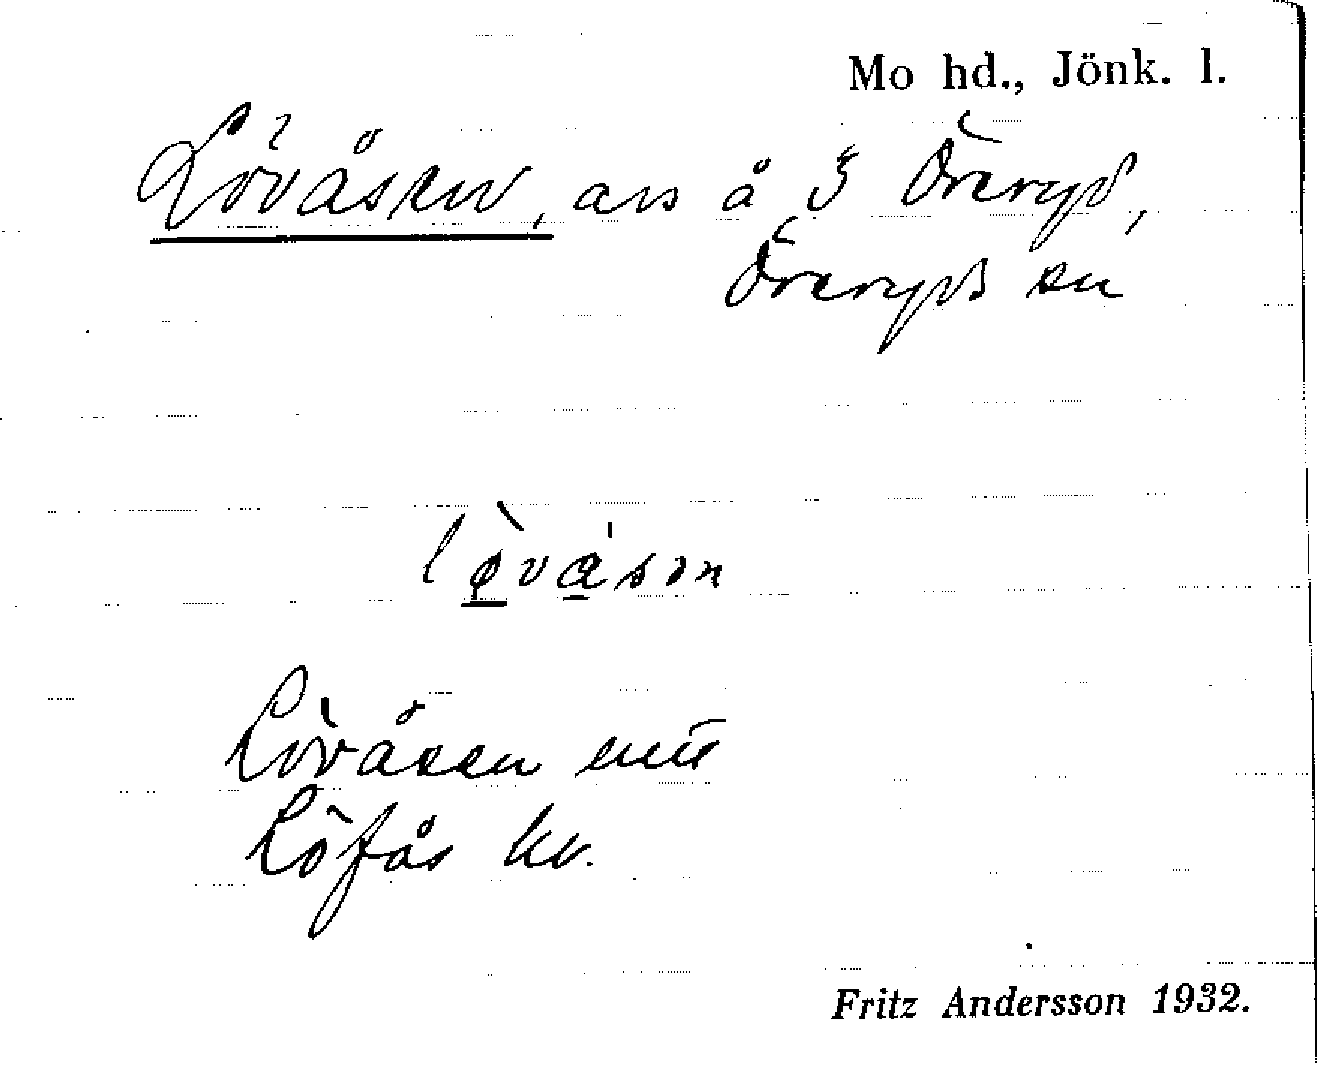 Mo hd., Jönk. l.
Lövåsen, avs å 3 Öreryd,
Öreryds sn
lø̀vásən
Lövåsen
Löfås kv.
Fritz Andersson 1932.